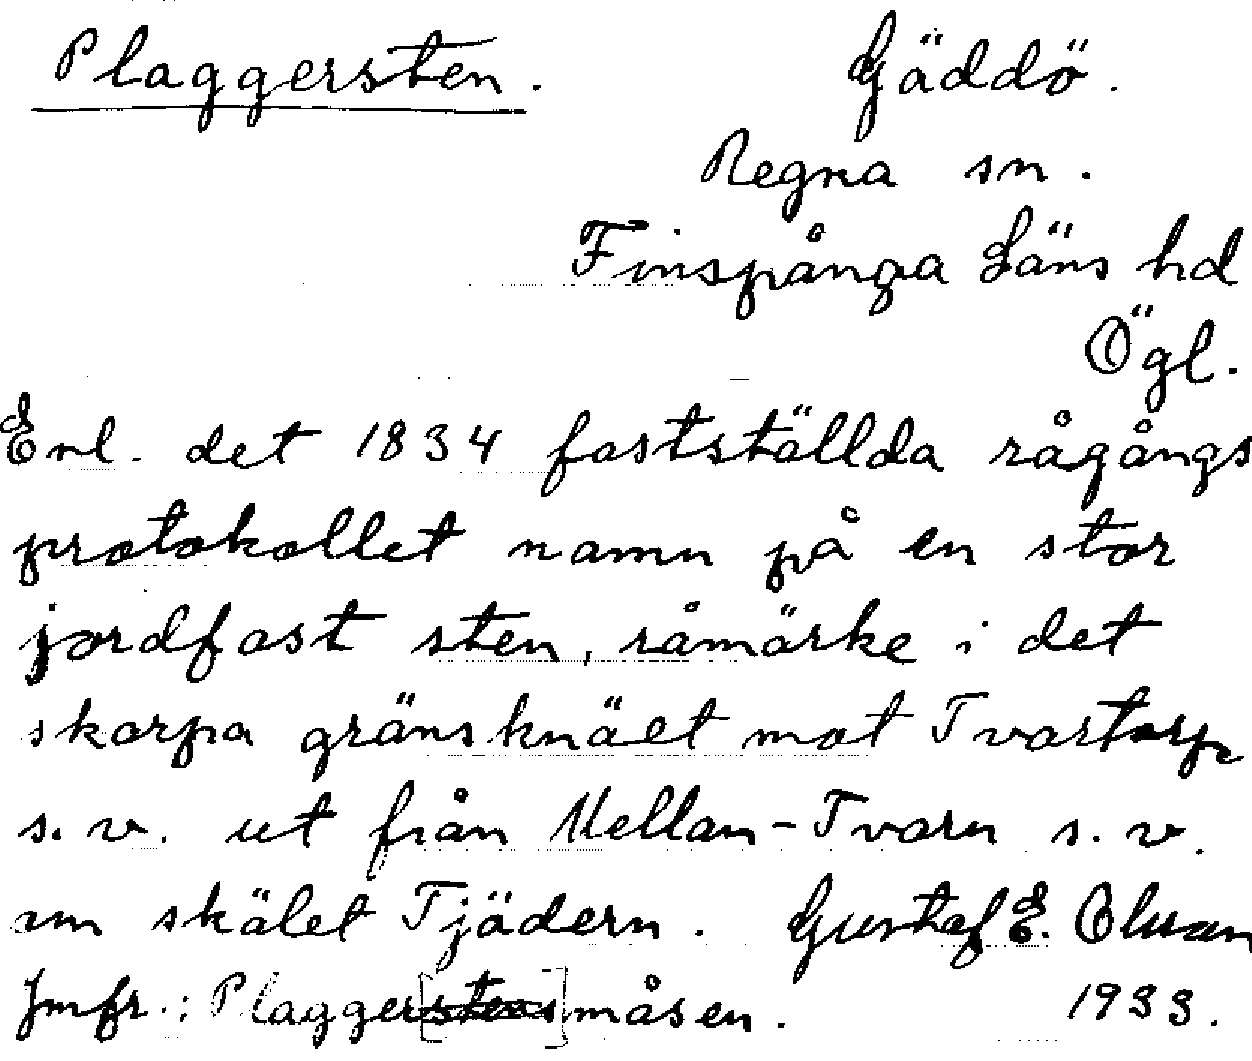 Plaggersten. Gäddö.
Regna sn.
Finspånga Läns hd
Ögl.
Enl. det 1834 fastställda rågångs
protokollet namn på en stor
jordfast sten, råmärke i det
skarpa gränsknäet mot Tvartorp
s.v. ut från Mellan-Tvarn s.v.
om skälet Tjädern. Gustaf E. Olsson
Jmfr.: Plagger[stens]måsen. 1933.